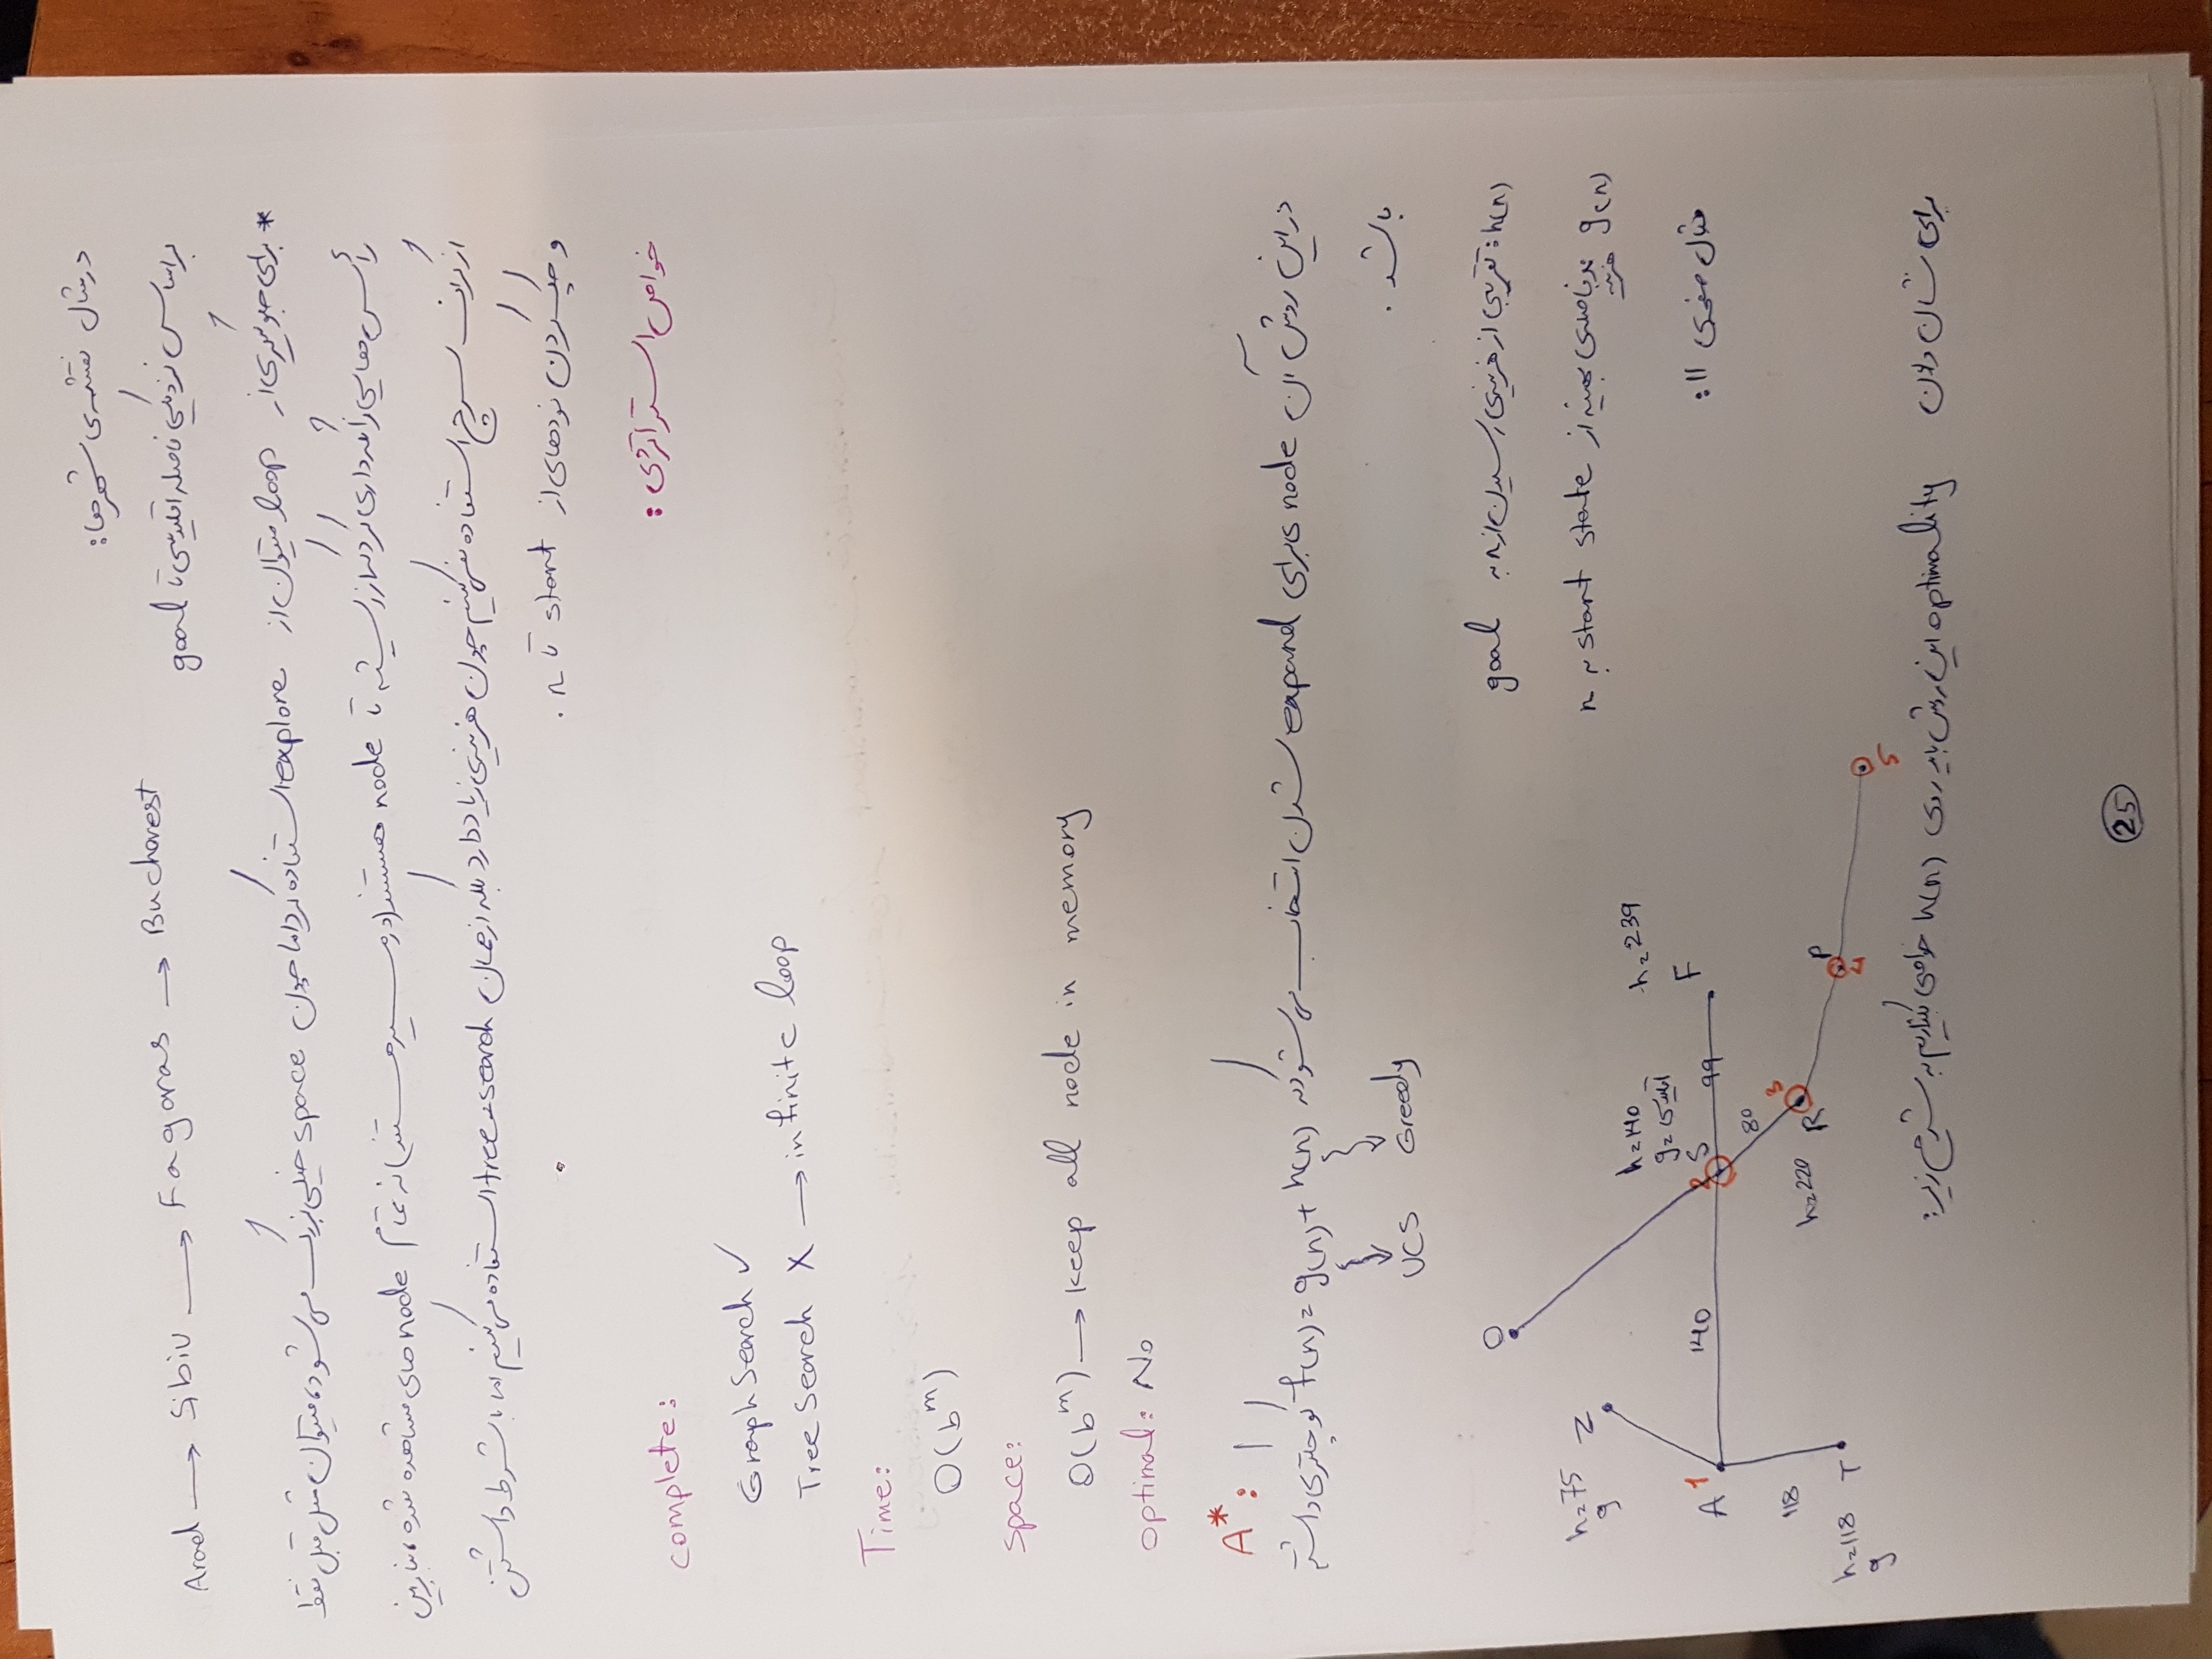 در مثال نقشه‌ی شهرها:
براساس نزدیکی فاصله اقلیدسی تا goal
Arad → Sibiu → Fagaras → Bucharest
* برای جلوگیری از loop میتوان از explore استفاده کرد اما چون space خیلی بزرگ می شود، میتوان مثل قبل فقط
رأس هایی را نگه داری کرد که از ریشه تا node هستند (در مسیر هستند) نه تمام node های مشاهده شده، بنابراین
از گراف سرچ استفاده نمی کنیم چون هزینه ی زیاد دارد بلکه از همان tree-search استفاده می کنیم اما با شرط داشتن
و چک کردن نودهای از start تا n.
خواص استراتژی:
complete:
Graph Search ✓
Tree Search X → infinite loop
Time:
O(b^m)
space:
O(b^m) → keep all node in memory
optimal: No
A*:
در این روش آن node ی برای expand شدن انتخاب می شود که f(n) = g(n) + h(n) کوچکتری داشته
باشد.
UCS Greedy
h(n): تقریبی از هزینه ی رسیدن از n به goal
g(n) فاصله ی بهینه از start state به n
هزینه
مثال صفحه ی 11:
O
h=75
g
Z
h=140
g= اقلیدسی
h=239
A 1
140
2 S
99
F
80
118
h=220
R
3
P
4
5
h=118
g
T
برای نشان دادن optimality این روش باید روی h(n) خواصی بگذاریم به شرح زیر:
25